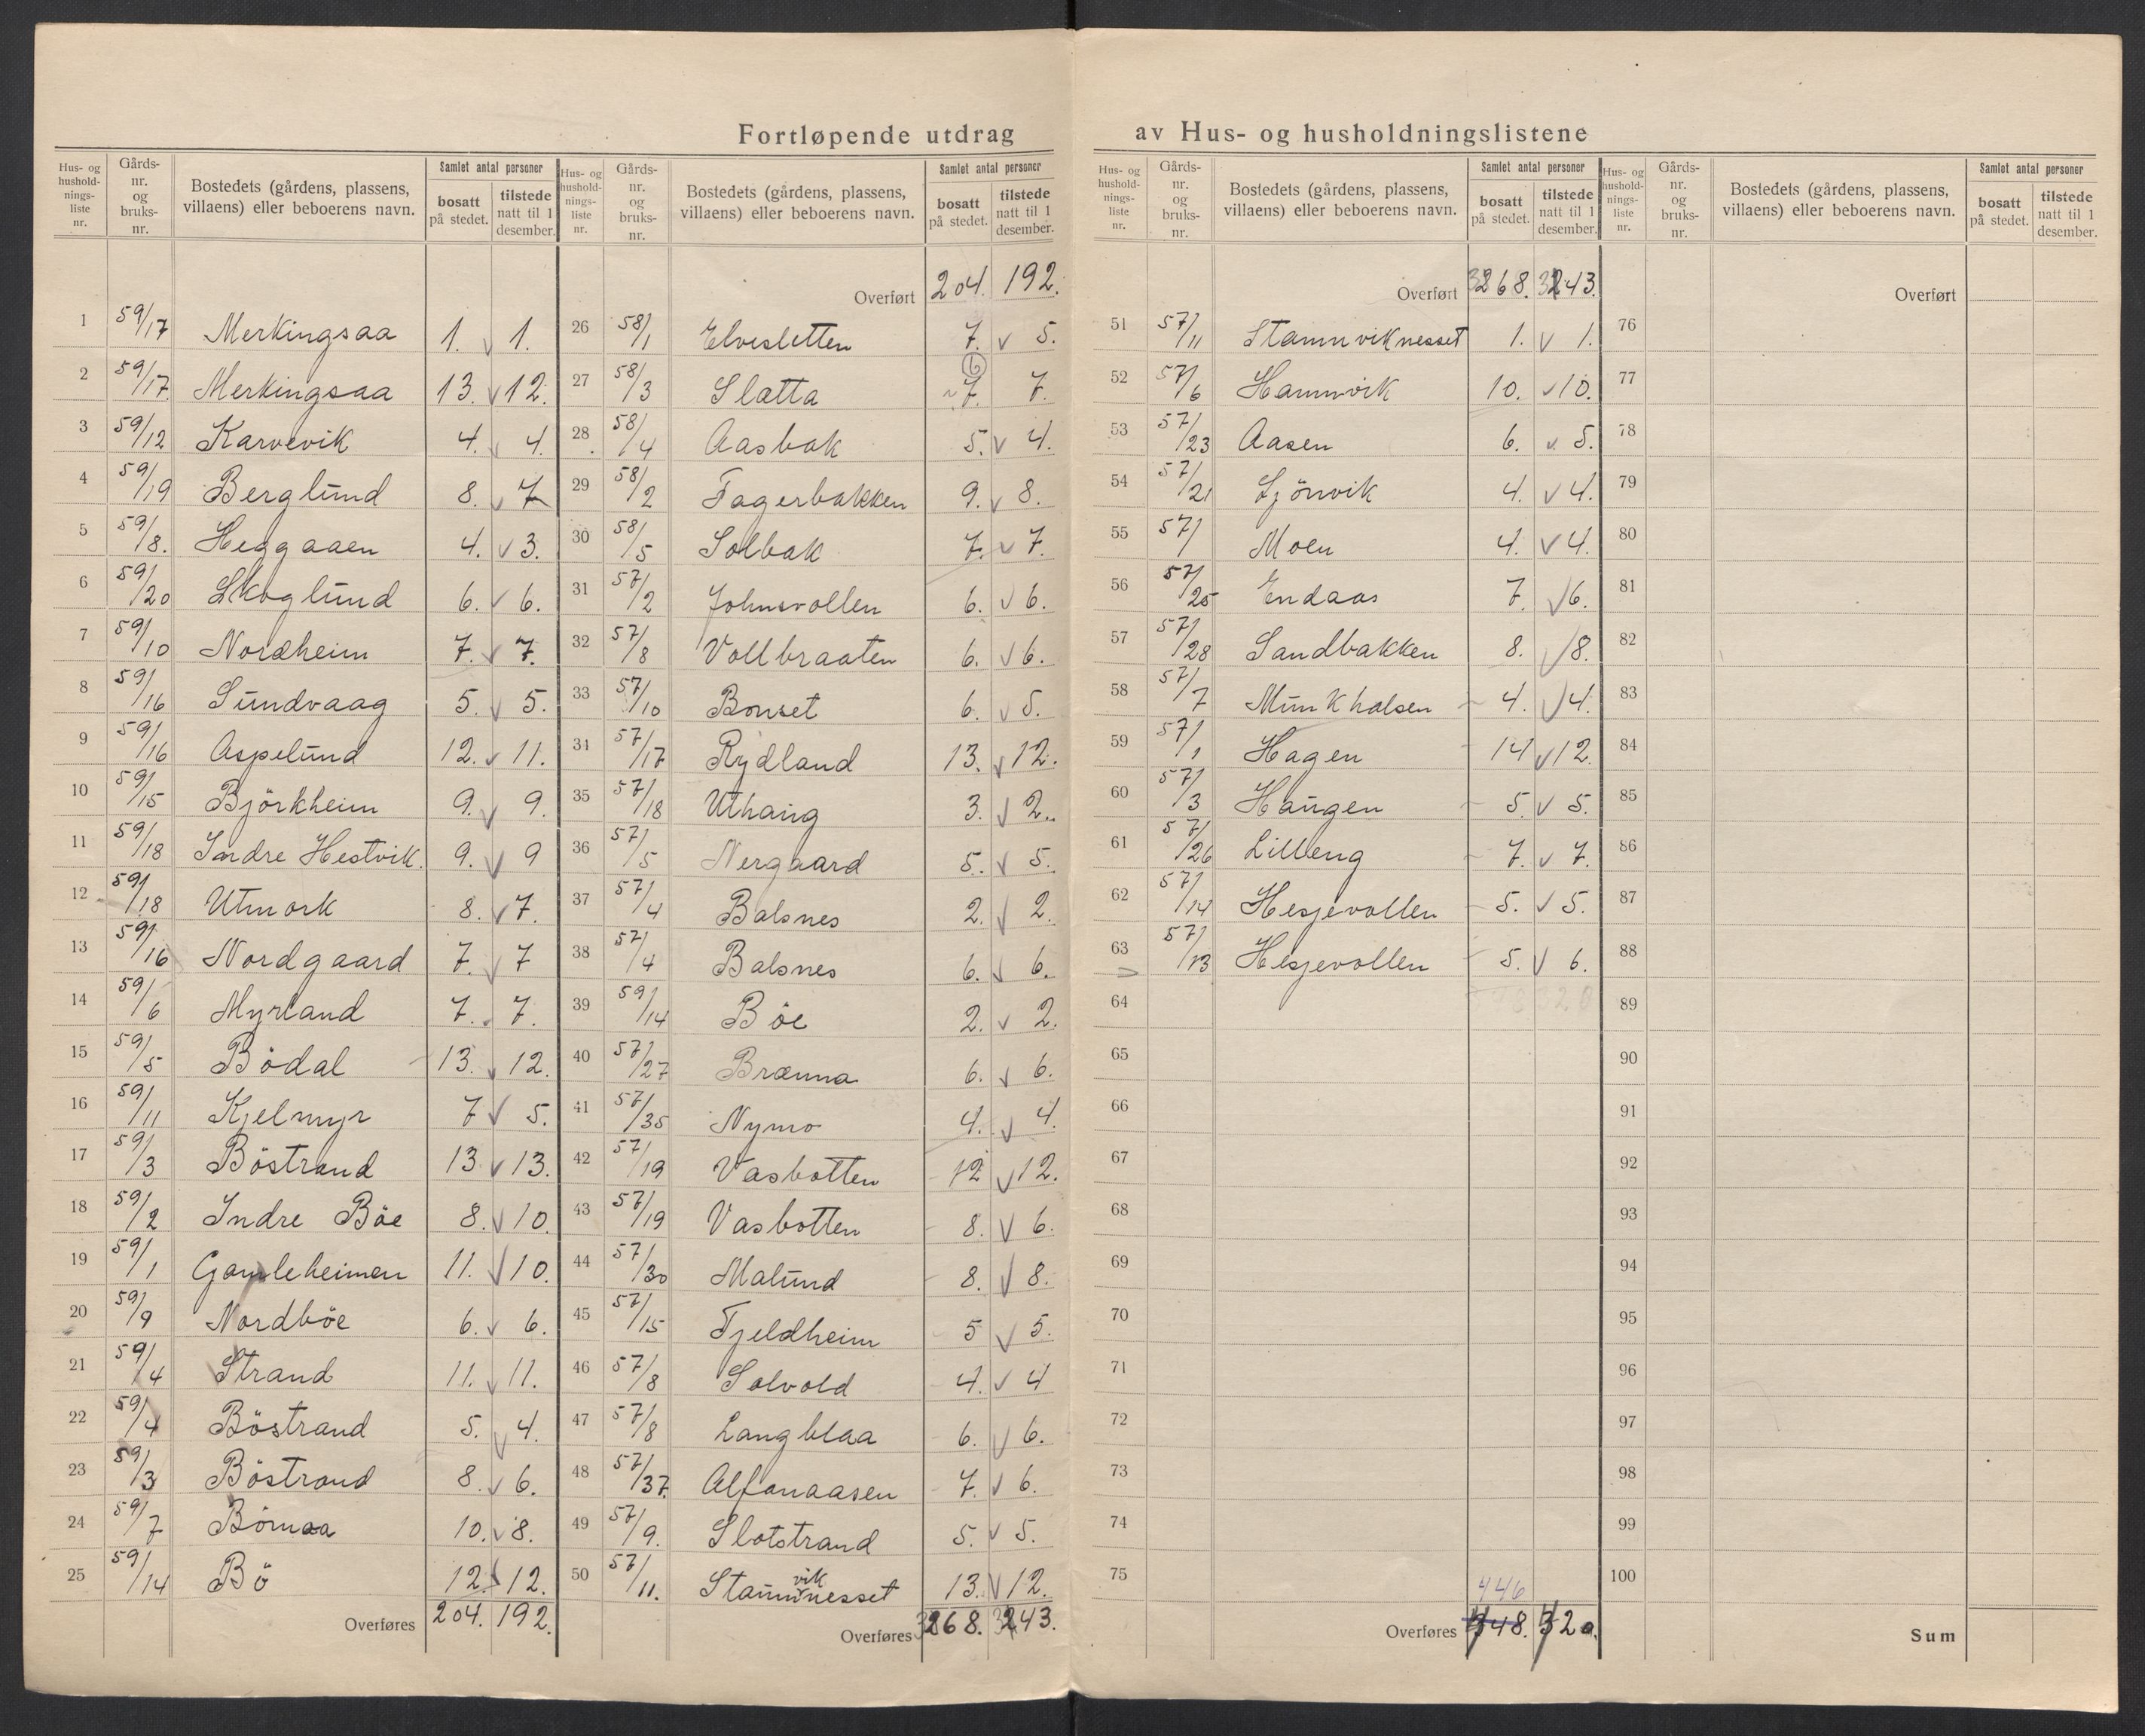 Fortløpende utdrag av Hus- og husholdningslistene
Hus- og husholdnings-liste nr. | Gårds-nr. og bruks-nr. | Bostedets (gårdens, plassens, villaens) eller beboerens navn. | Samlet antal personer bosatt på stedet. | tilstede natt til 1 desember.
1 59/17 Merkingsaa 1. v 1.
2 59/17 Merkingsaa 13. v 12.
3 59/12 Karvevik 4. v 4.
4 59/19 Berglund 8. v 7
5 59/8. Heggaaen 4. v 3.
6 59/20 Skoglund 6. v 6.
7 59/10 Nordheim 7. v 7.
8 59/16 Sundvaag 5. v 5.
9 59/16 Aspelund 12. v 11.
10 59/15 Björkheim 9. v 9.
11 59/18 Indre Hestvik. 9. v 9
12 59/18 Utmark 8. v 7.
13 59/16 Nordgaard 7. v 7
14 59/6 Myrland 7. v 7.
15 59/5 Bödal 13. v 12.
16 59/11 Kjelmyr 7 v 5.
17 59/3 Böstrand 13 v 13.
18 59/2 Indre Böe 8. v 10.
19 59/1 Gamleheimen 11. v 10.
20 59/9 Nordböe 6. v 6.
21 59/4 Strand 11. v 11.
22 59/4 Böstrand 5. v 4.
23 59/3 Böstrand 8. v 6.
24 59/7 Börnaa 10. v 8.
25 59/14 Bö 12. v 12.
Overføres 204. 192.
Hus- og husholdnings-liste nr. | Gårds-nr. og bruks-nr. | Bostedets (gårdens, plassens, villaens) eller beboerens navn. | Samlet antal personer bosatt på stedet. | tilstede natt til 1 desember.
Overført 204. 192.
26 58/1 Elvesletten 7. v 5.
27 58/3 Slatta (6) 7. 7.
28 58/4 Aasbak 5. v 4.
29 58/2 Fagerbakken 9. v 8.
30 58/5 Solbak 7. v 7.
31 57/2 Johnsvollen 6. v 6.
32 57/8 Vollbraaten 6. v 6.
33 57/10 Bonset 6. v 5.
34 57/17 Rydland 13. v 12.
35 57/18 Uthaug 3. v 2.
36 57/5 Nergaard 5. v 5.
37 57/4 Balsnes 2. v 2.
38 57/4 Balsnes 6. v 6.
39 59/14 Böe 2. v 2.
40 57/27 Brænna 6. v 6.
41 57/35 Nymo 4. v 4.
42 57/19 Vasbotten 12 v 12.
43 57/19 Vasbotten 8. v 6.
44 57/30 Malund 8. v 8.
45 57/15 Fjeldheim 5 v 5.
46 57/8 Solvold 4. v 4
47 57/8 Langblaa 6. v 6.
48 57/37. Alfanaasen 7. v 6.
49 57/9. Slotstrand 5. v 5.
50 57/11. Stamnviknesset 13. v 12.
Overføres 368. 343.
Hus- og husholdnings-liste nr. | Gårds-nr. og bruks-nr. | Bostedets (gårdens, plassens, villaens) eller beboerens navn. | Samlet antal personer bosatt på stedet. | tilstede natt til 1 desember.
Overført 368. 343.
51 57/11 Stamnviknesset 1. v 1.
52 57/6 Hamnvik 10. v 10.
53 57/23 Aasen 6. v 5.
54 57/21 Sjönvik 4. v 4.
55 57/ Moen 4. v 4.
56 57/25 Endaas 7. v 6.
57 57/28 Sandbakken 8. v 8.
58 57/7 Munkhalsen 4. v 4.
59 57/1 Hagen 14 v 12.
60 57/3 Haugen 5. v 5.
61 57/26 Lilleng 7. v 7.
62 57/14 Hesjevollen 5. v 5.
63 57/13 Hesjevollen 5. v 6.
64
65
66
67
68
69
70
71
72
73
74
75
446
Overføres 448. 420.
Hus- og husholdnings-liste nr. | Gårds-nr. og bruks-nr. | Bostedets (gårdens, plassens, villaens) eller beboerens navn. | Samlet antal personer bosatt på stedet. | tilstede natt til 1 desember.
Overført
76
77
78
79
80
81
82
83
84
85
86
87
88
89
90
91
92
93
94
95
96
97
98
99
100
Sum